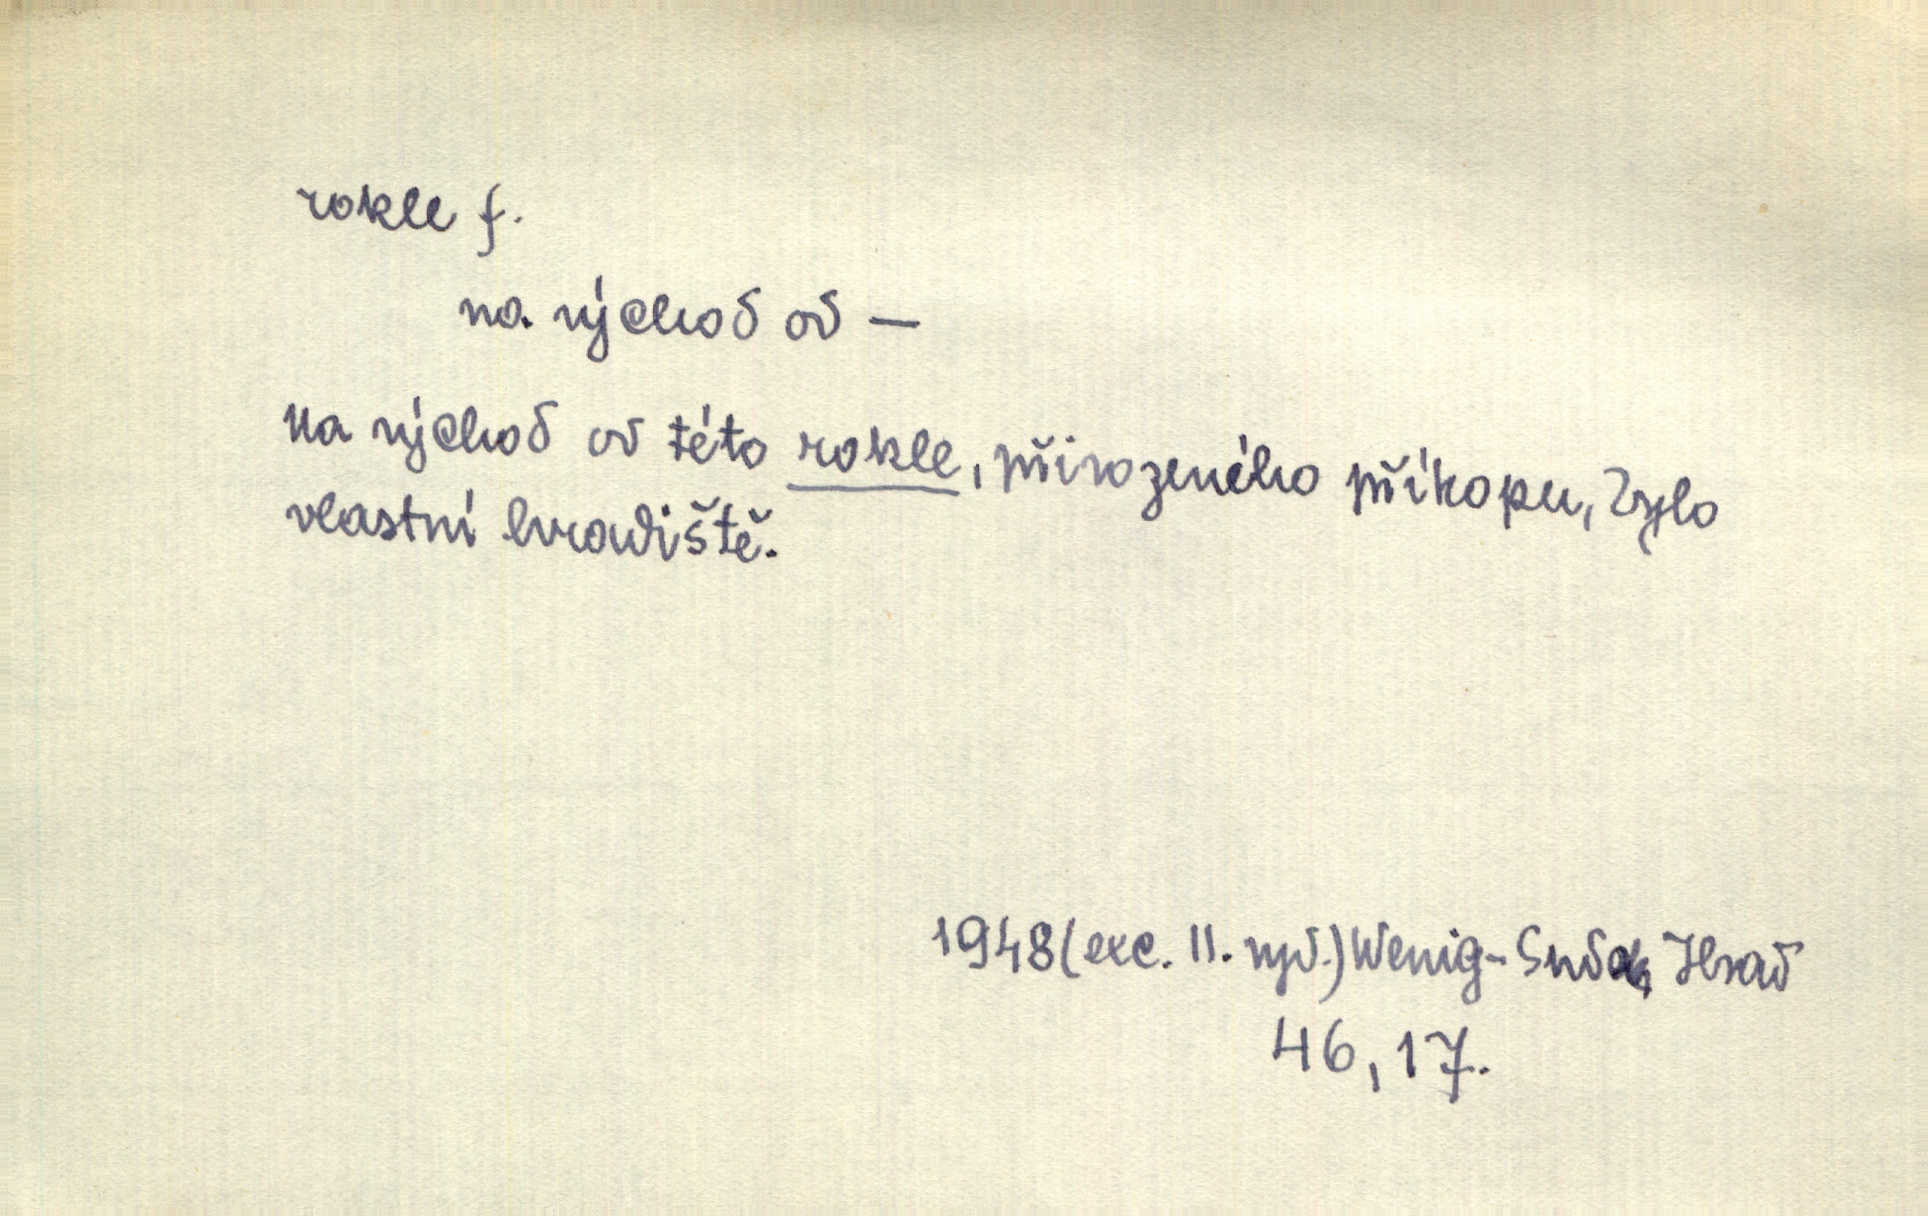 rokle f.
na východ od —
Na východ od této rokle, přirozeného příkopu, bylo
vlastní hradiště.
1948 (exc. II. vyd.) Wenig- Hrad
46, 17.